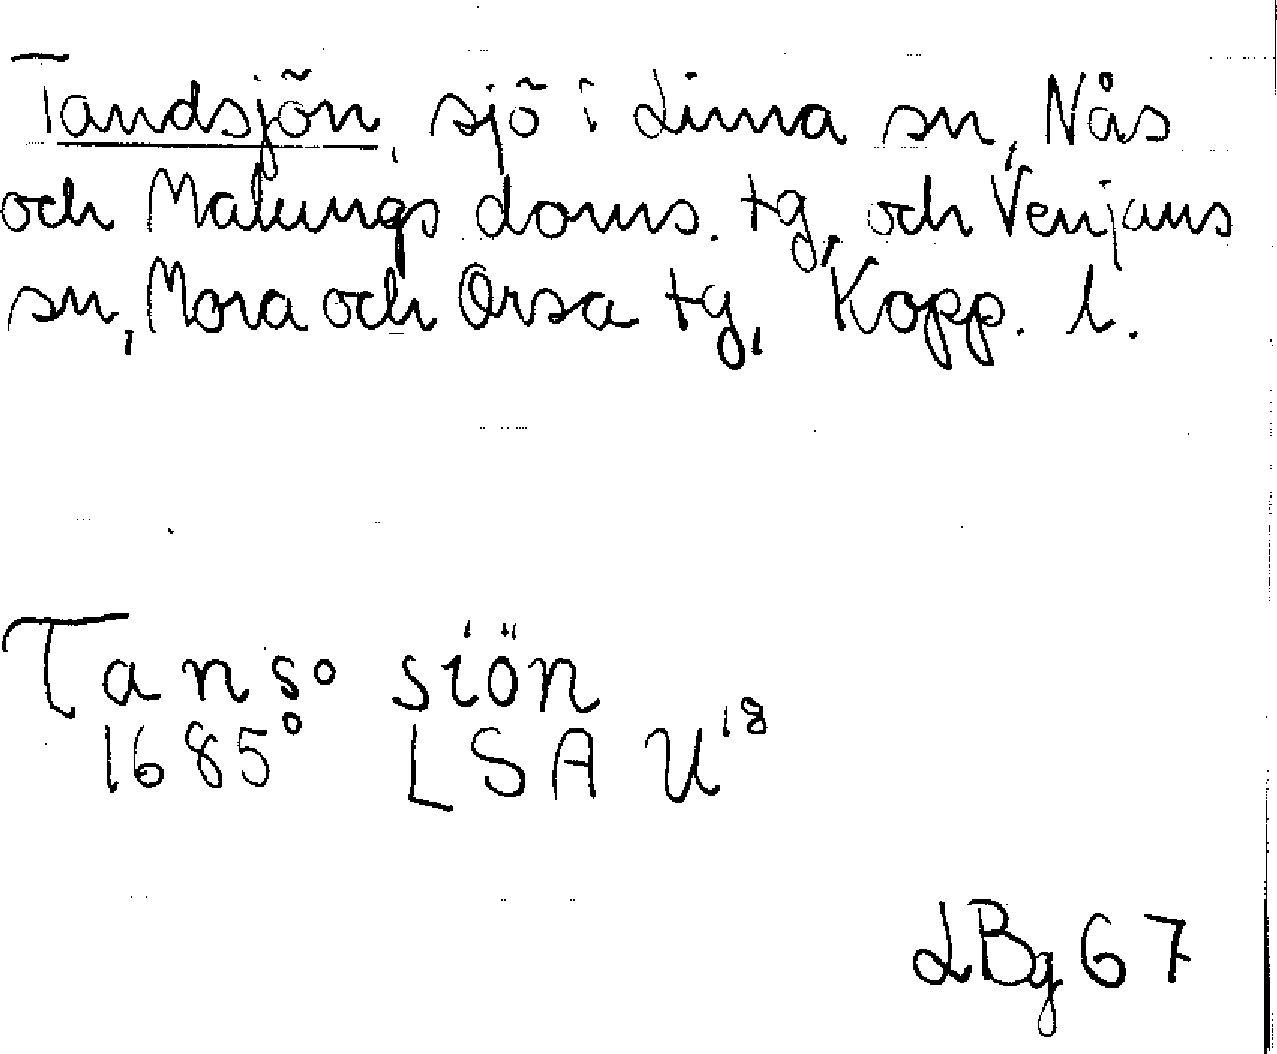 Tandsjön, sjö i Lima sn, Nås
och Malungs doms. tg, och Venjans
sn, Mora och Orsa tg, Kopp. l.
Tanso siön
1685° LSA U¹⁸
LBg 67